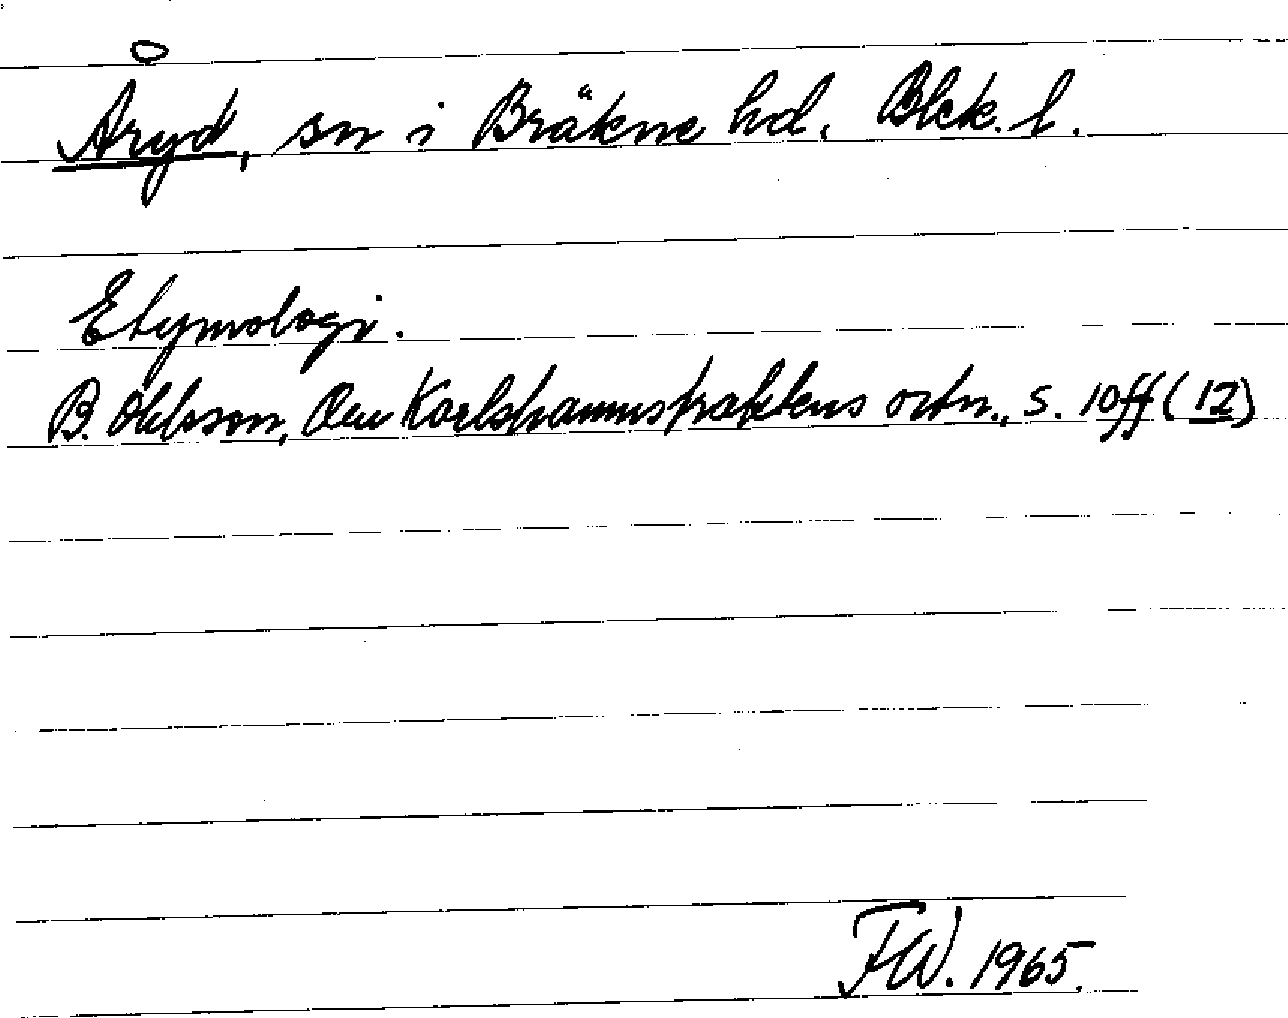 Åryd, sn i Bräkne hd. Blek. l.
Etymologi.
B. Ohlsson, Om Karlshamnstraktens ortn., s. 10ff (12)
FW. 1965.